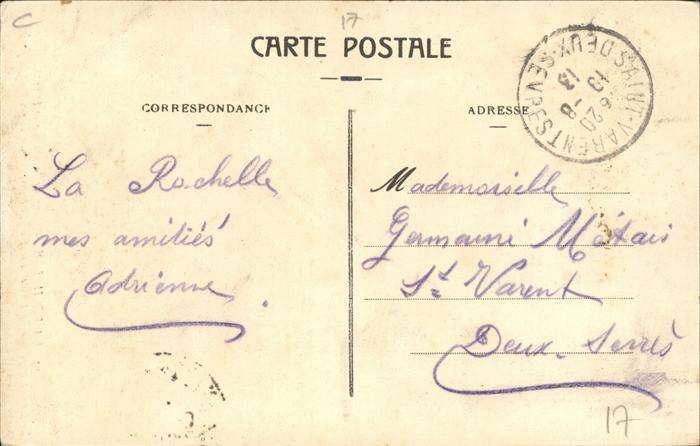 C
17
CARTE POSTALE
CORRESPONDANCE
La Rochelle
mes amitiés
Adrienne
ADRESSE
Mademoiselle
Germaine Métais
St Varent
Deux-Sevrès
SAINT-VARENT DEUX-SEVRES
13 -8
13
17